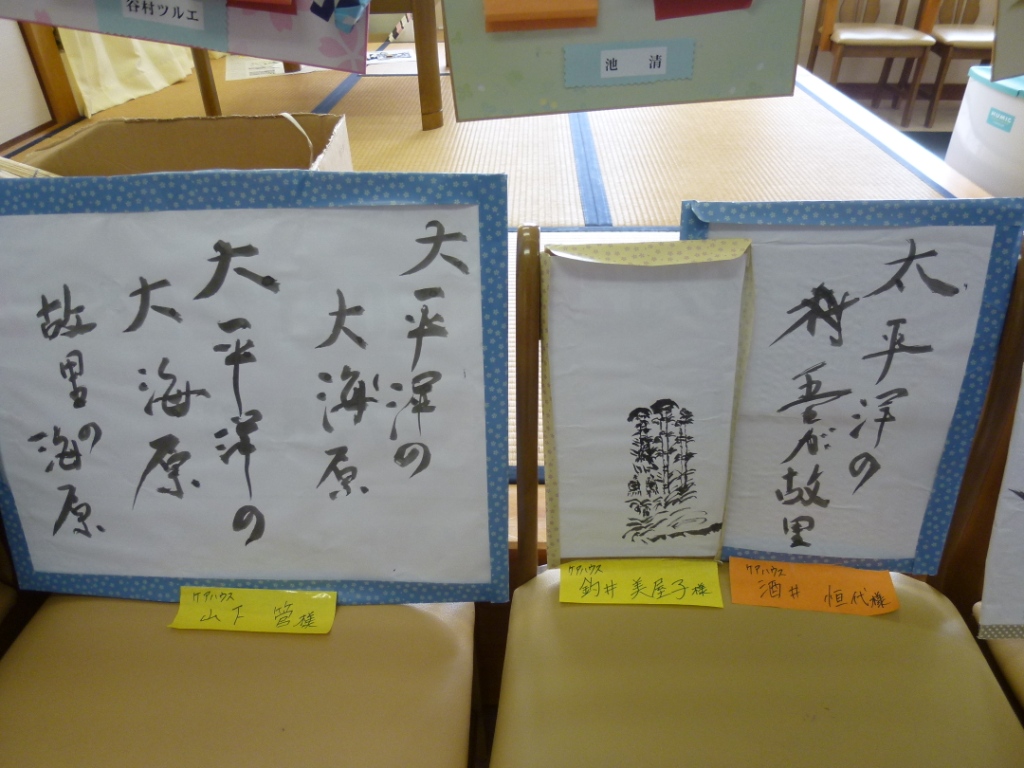 谷村ツルエ
池 清
大平洋の
大海原
大平洋の
大海原
故里の海原
太平洋の
村吾が故里
ケアハウス
山下 管様
ケアハウス
釣井 美屋子様
ケアハウス
酒井 恒代様